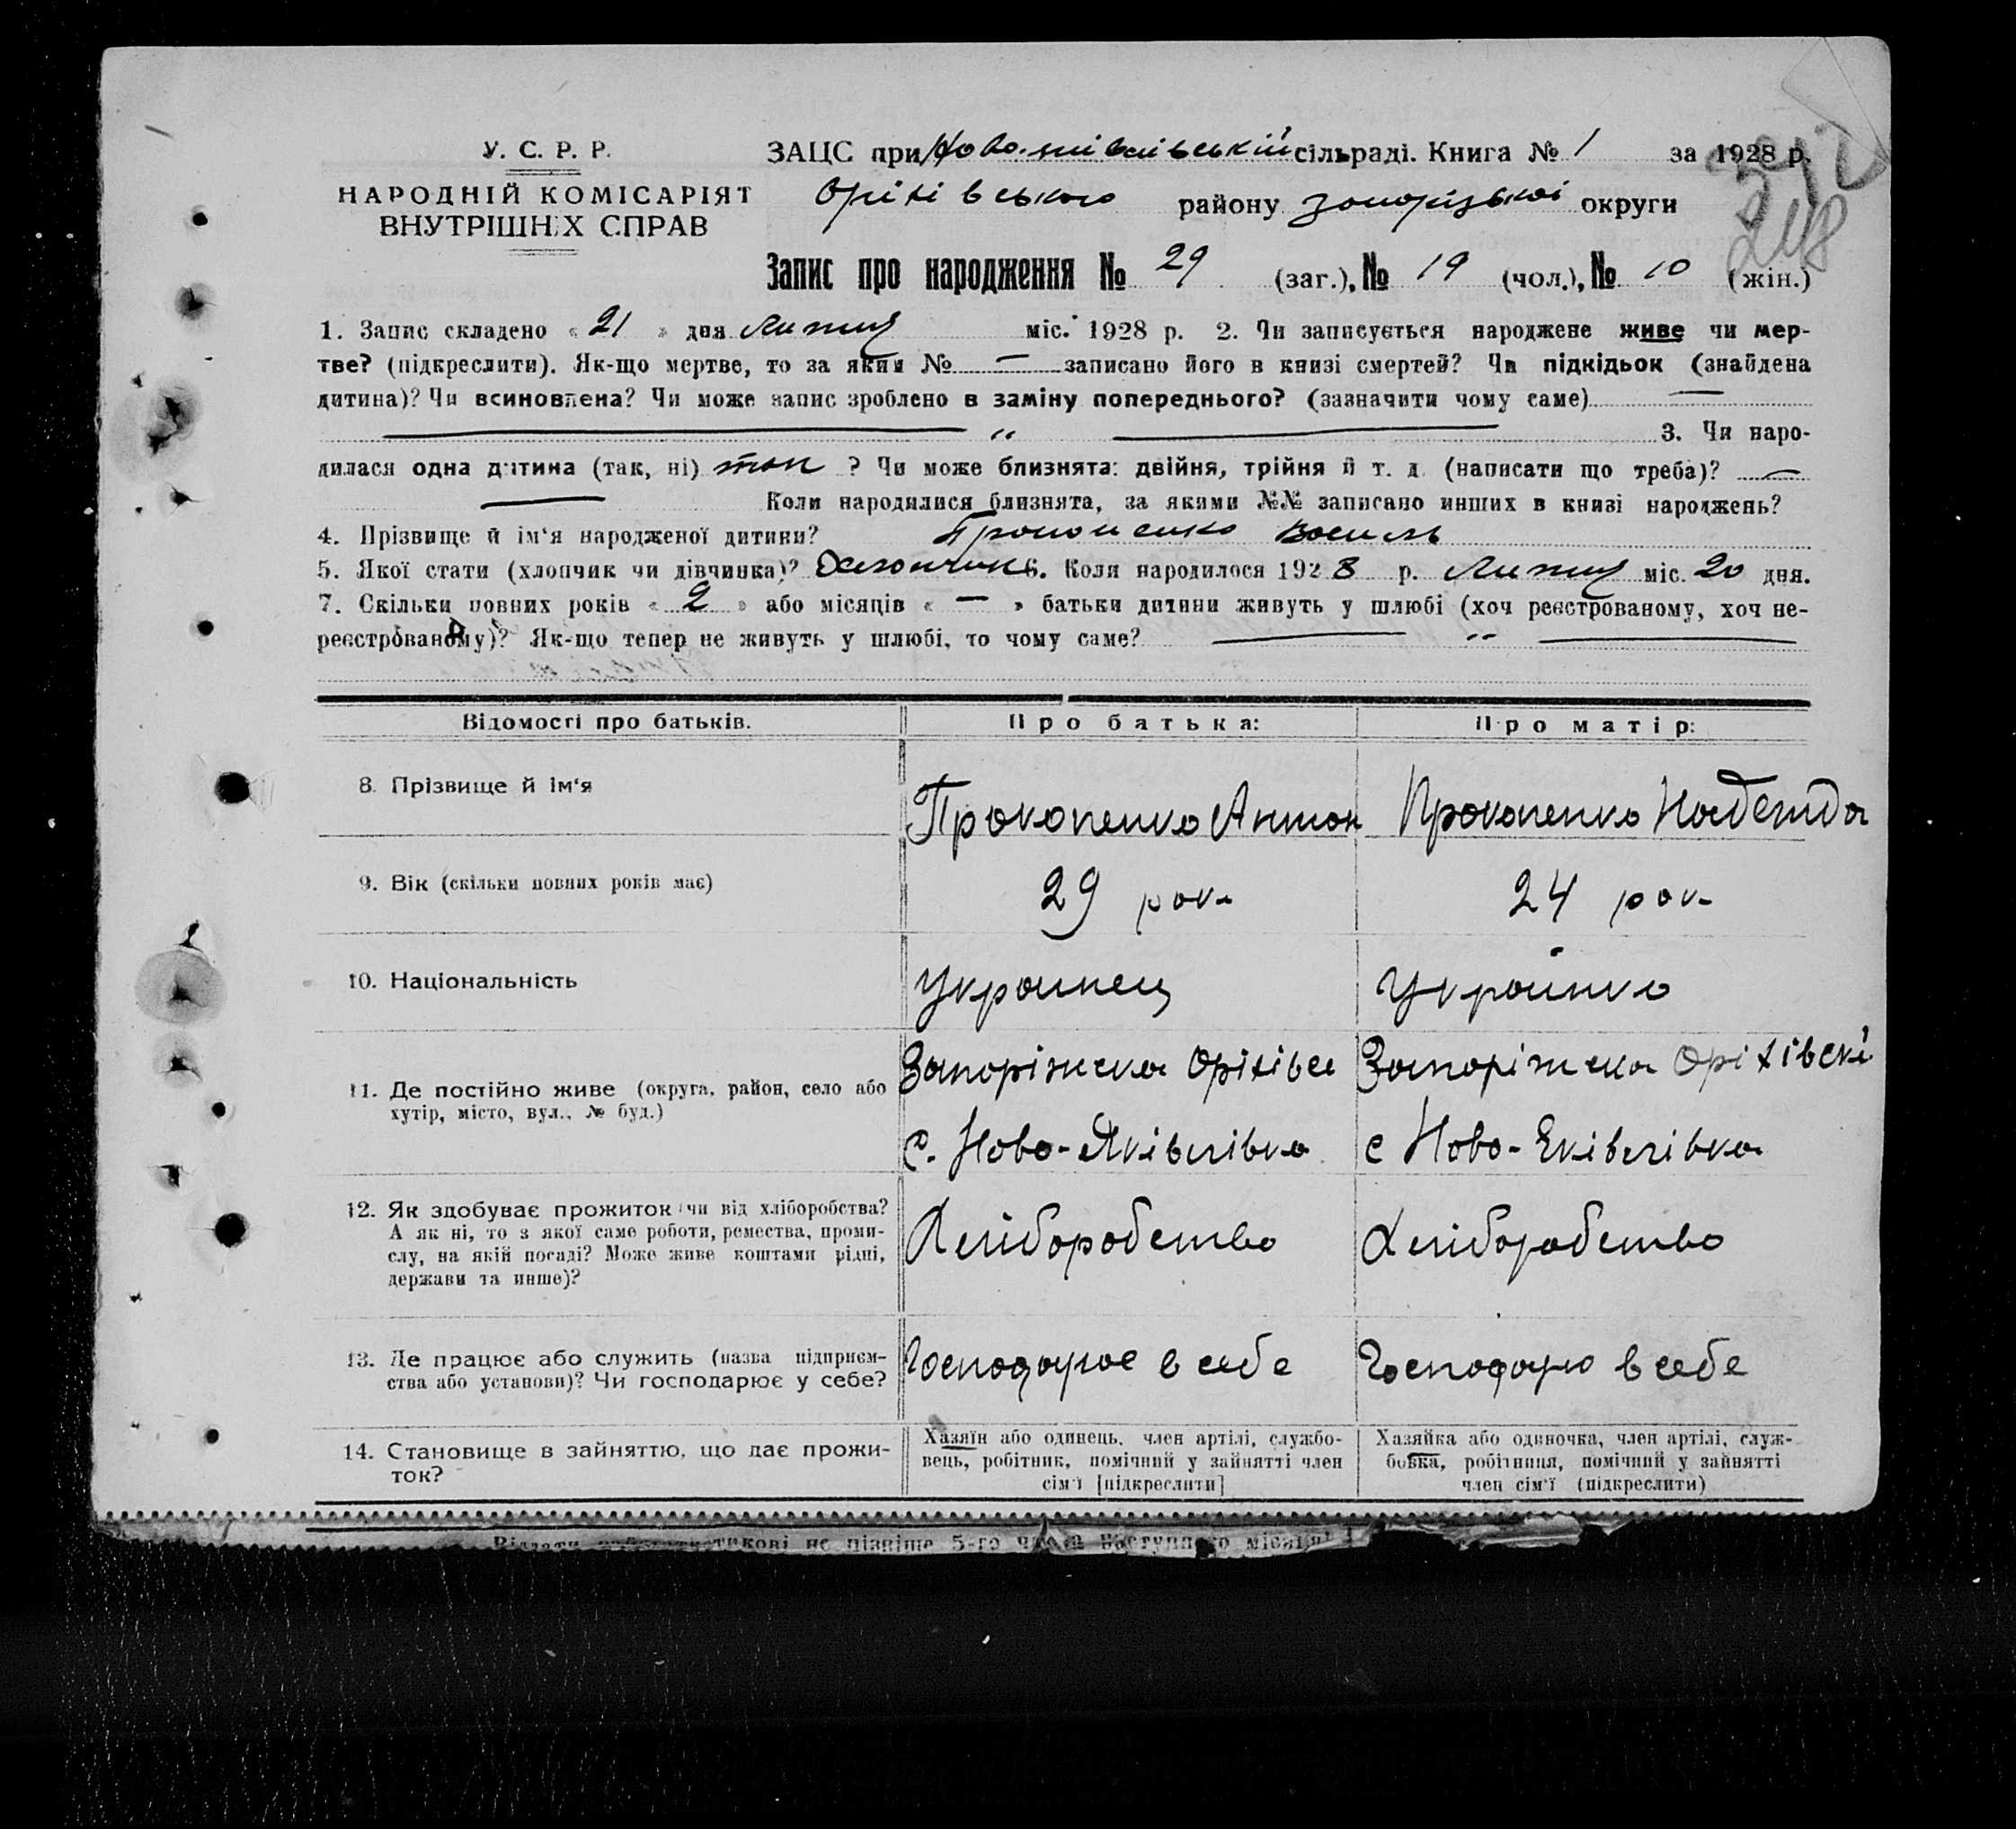 У. С. Р. Р.
НАРОДНІЙ КОМІСАРІЯТ
ВНУТРІШНІХ СПРАВ
ЗАЦС при Ново-яківлівській сільраді. Книга № 1 за 1928 р.
Оріхівського району Запорізької округи
248
Запис про народження № 29 (заг.), № 19 (чол.), № 10 (жін.)
1. Запис складено « 21 » дня Липня міс. 1928 р. 2. Чи записується народжене живе чи мер-
тве? (підкреслити). Як-що мертве, то за яким № — записано його в книзі смертей? Чи підкідьок (знайдена
дитина)? Чи всиновлена? Чи може запис зроблено в заміну попереднього? (зазначити чому саме) —
— " — 3. Чи наро-
дилася одна дитина (так, ні) так ? Чи може близнята: двійня, трійня й т. д. (написати що треба)? —
— Коли народилися близнята, за якими №№ записано инших в книзі народжень?
4. Прізвище й ім'я народженої дитини? Прокопенко Василь
5. Якої стати (хлопчик чи дівчинка)? Хлопчик 6. Коли народилося 1928 р. Липня міс. 20 дня.
7. Скільки повних років « 2 » або місяців « — » батьки дитини живуть у шлюбі (хоч реєстрованому, хоч не-
реєстрованому)? Як-що тепер не живуть у шлюбі, то чому саме? — " —
Відомості про батьків. Про батька: Про матір:
8. Прізвище й ім'я Прокопенко Антон Прокопенко Надежда
9. Вік (скільки повних років має) 29 рок. 24 рок.
10. Національність Украинец Українка
11. Де постійно живе (округа, район, село або
хутір, місто, вул., № буд.)
Запоріжска Оріхівск Запоріжска Оріхівскі
с. Ново-Яківлівка с Ново-Яківлівка
12. Як здобуває прожиток (чи від хліборобства?
А як ні, то з якої саме роботи, ремества, проми-
слу, на якій посаді? Може живе коштами рідні,
держави та инше)?
Хліборобство Хліборобство
13. Де працює або служить (назва підприєм-
ства або установи)? Чи господарює у себе?
Господарює в себе Господарює в себе
14. Становище в зайняттю, що дає прожи-
ток?
Хазяїн або одинець, член артілі, службо-
вець, робітник, помічний у зайнятті член
сім'ї [підкреслити]
Хазяйка або одиночка, член артілі, служ-
бовка, робітниця, помічний у зайнятті
член сім'ї (підкреслити)
не пізніше 5-го числа наступного місяця!